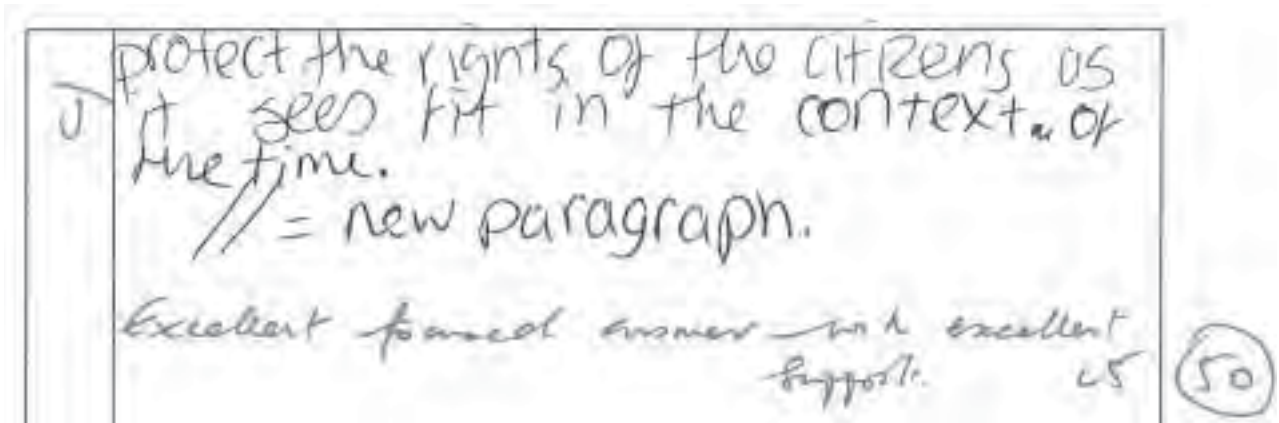 protect the rights of the citizens as
it sees fit in the context of
the time.
// = new paragraph.
Excellent focused answer with excellent
support. L5
50